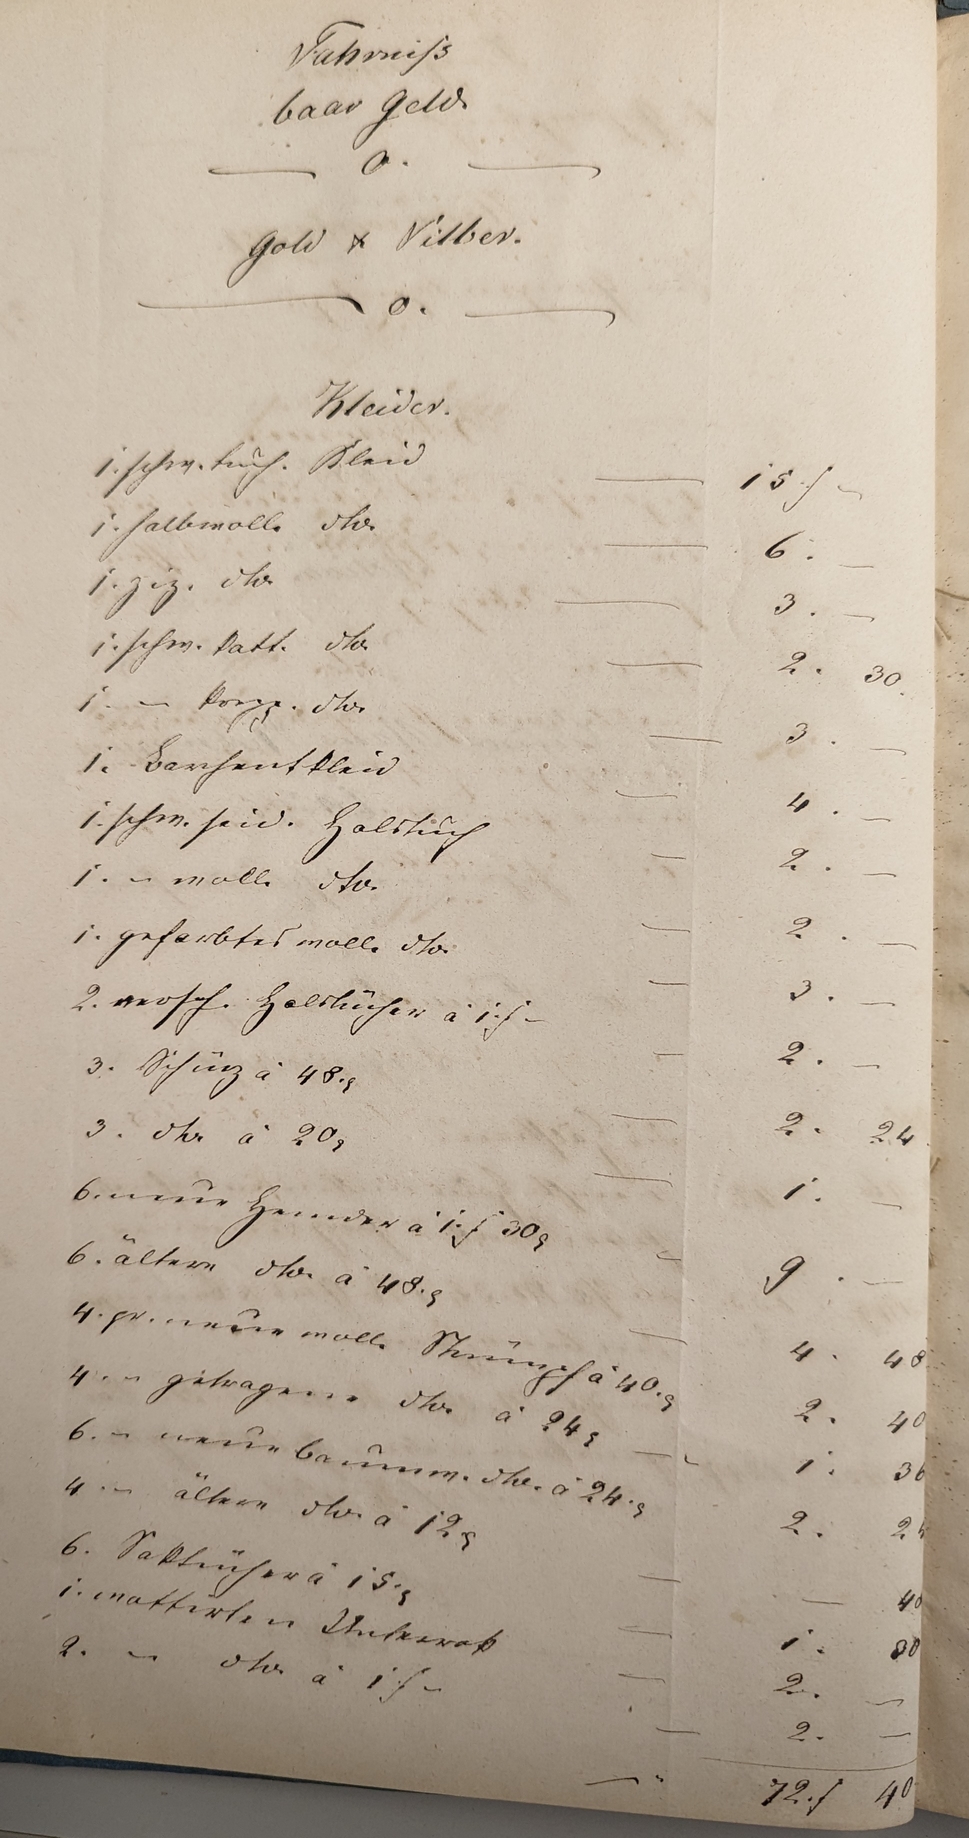 Fahrniß
baar Geld
— 0. —
Gold & Silber.
— 0. —
Kleider.
1. schw. tuch. Kleid — 15 f –
1. halbwoll. dto. — 6. –
1. ziz. dto. — 3. –
1. schw. katt. dto. — 2. 30.
1. – dto. — 3. –
1. Barchentkleid — 4. –
1. schw. seid. Halstuch — 2. –
1. – woll. dto. — 2. –
1. gefarbtes woll. dto. — 3. –
2. versch. Halstücher à 1 f – — 2. –
3. Schürz à 48. — 2. 24
3. dto à 20 — 1. –
6. neue Hemder à 1 f 30 — 9. –
6. ältere dto. à 48. — 4. 48
4. pr. neue woll. Strümpf à 40. — 2. 40
4. – getragene dto. à 24 — 1. 36
6. – neue baumw. dto. à 24. — 2. 24
4 – ältere dto. à 12 — 40
6. Saktücher à 15. — 1. 30
1. wattirten Unterrok — 2. –
2. – dto. à 1 f – — 2. –
— 72. f 40